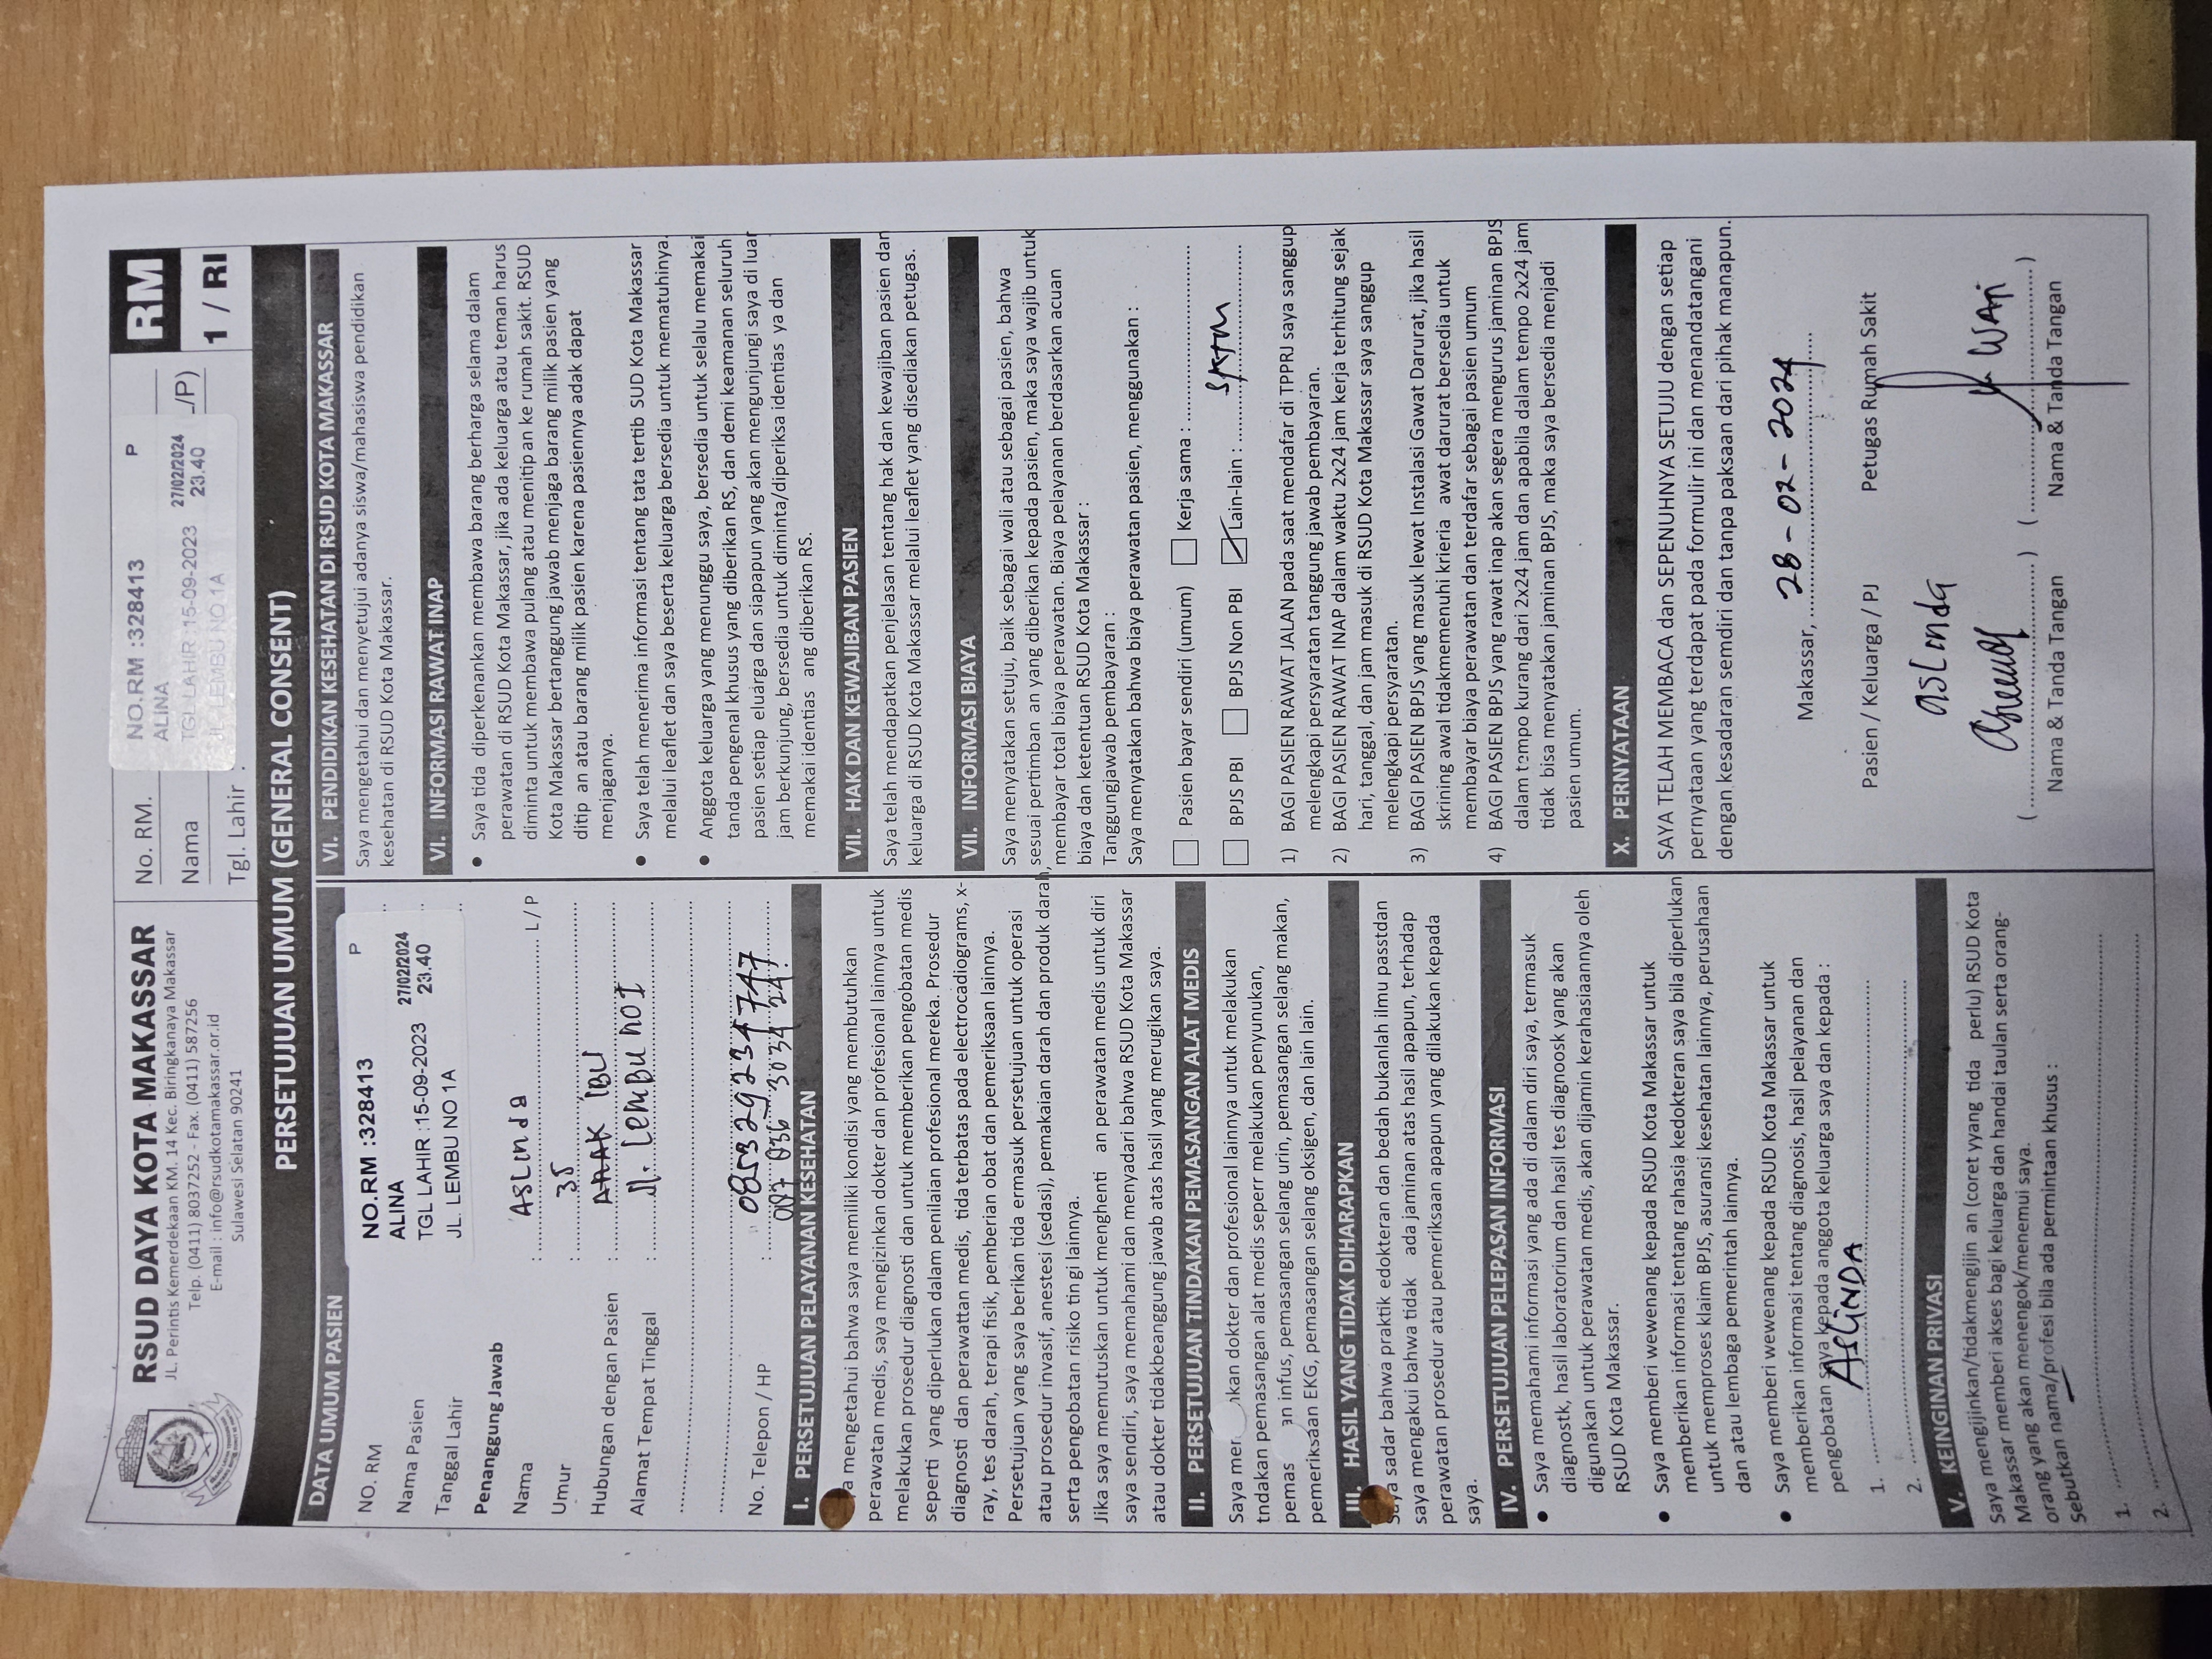 RSUD DAYA KOTA MAKASSAR
JL. Perintis Kemerdekaan KM. 14 Kec. Biringkanaya Makassar
Telp. (0411) 8037252 - Fax. (0411) 587256
E-mail : info@rsudkotamakassar.or.id
Sulawesi Selatan 90241
No. RM.
Nama
Tgl. Lahir :
NO.RM :328413 P
ALINA
TGL LAHIR :15-09-2023 27/02/2024
23.40
JL. LEMBU NO 1A
L/P)
RM
1 / RI
PERSETUJUAN UMUM (GENERAL CONSENT)
DATA UMUM PASIEN
NO. RM
Nama Pasien
Tanggal Lahir
NO.RM :328413 P
ALINA
TGL LAHIR :15-09-2023 27/02/2024
23.40
JL. LEMBU NO 1A
Penanggung Jawab
Nama : Aslinda L / P
Umur : 35
Hubungan dengan Pasien : ANAK IBU
Alamat Tempat Tinggal : Jl. Lembu no I
No. Telepon / HP : 085329234747
087 836 3034 24
I. PERSETUJUAN PELAYANAN KESEHATAN
a mengetahui bahwa saya memiliki kondisi yang membutuhkan
perawatan medis, saya mengizinkan dokter dan profesional lainnya untuk
melakukan prosedur diagnosti dan untuk memberikan pengobatan medis
seperti yang diperlukan dalam penilaian profesional mereka. Prosedur
diagnosti dan perawattan medis, tida terbatas pada electrocadiograms, x-
ray, tes darah, terapi fisik, pemberian obat dan pemeriksaan lainnya.
Persetujuan yang saya berikan tida ermasuk persetujuan untuk operasi
atau prosedur invasif, anestesi (sedasi), pemakaian darah dan produk darah,
serta pengobatan risiko tin gi lainnya.
Jika saya memutuskan untuk menghenti an perawatan medis untuk diri
saya sendiri, saya memahami dan menyadari bahwa RSUD Kota Makassar
atau dokter tidakbeanggung jawab atas hasil yang merugikan saya.
II. PERSETUJUAN TINDAKAN PEMASANGAN ALAT MEDIS
Saya men nkan dokter dan profesional lainnya untuk melakukan
tndakan pemasangan alat medis seperr melakukan penyunukan,
pemas an infus, pemasangan selang urin, pemasangan selang makan,
pemeriksaan EKG, pemasangan selang oksigen, dan lain lain.
III. HASIL YANG TIDAK DIHARAPKAN
Saya sadar bahwa praktik edokteran dan bedah bukanlah ilmu passtdan
saya mengakui bahwa tidak ada jaminan atas hasil apapun, terhadap
perawatan prosedur atau pemeriksaan apapun yang dilakukan kepada
saya.
IV. PERSETUJUAN PELEPASAN INFORMASI
● Saya memahami informasi yang ada di dalam diri saya, termasuk
diagnostk, hasil laboratorium dan hasil tes diagnoosk yang akan
digunakan untuk perawatan medis, akan dijamin kerahasiaannya oleh
RSUD Kota Makassar.
● Saya memberi wewenang kepada RSUD Kota Makassar untuk
memberikan informasi tentang rahasia kedokteran saya bila diperlukan
untuk memproses klaim BPJS, asuransi kesehatan lainnya, perusahaan
dan atau lembaga pemerintah lainnya.
● Saya memberi wewenang kepada RSUD Kota Makassar untuk
memberikan informasi tentang diagnosis, hasil pelayanan dan
pengobatan saya kepada anggota keluarga saya dan kepada :
1. ASLINDA
2.
V. KEINGINAN PRIVASI
Saya mengijinkan/tidakmengijin an (coret yyang tida perlu) RSUD Kota
Makassar memberi akses bagi keluarga dan handai taulan serta orang-
orang yang akan menengok/menemui saya.
Sebutkan nama/profesi bila ada permintaan khusus :
1.
2.
VI. PENDIDIKAN KESEHATAN DI RSUD KOTA MAKASSAR
Saya mengetahui dan menyetujui adanya siswa/mahasiswa pendidikan
kesehatan di RSUD Kota Makassar.
VI. INFORMASI RAWAT INAP
● Saya tida diperkenankan membawa barang berharga selama dalam
perawatan di RSUD Kota Makassar, jika ada keluarga atau teman harus
diminta untuk membawa pulang atau menitip an ke rumah sakit. RSUD
Kota Makassar bertanggung jawab menjaga barang milik pasien yang
ditip an atau barang milik pasien karena pasiennya adak dapat
menjaganya.
● Saya telah menerima informasi tentang tata tertib SUD Kota Makassar
melalui leaflet dan saya beserta keluarga bersedia untuk mematuhinya.
● Anggota keluarga yang menunggu saya, bersedia untuk selalu memakai
tanda pengenal khusus yang diberikan RS, dan demi keamanan seluruh
pasien setiap eluarga dan siapapun yang akan mengunjungi saya di luar
jam berkunjung, bersedia untuk diminta/diperiksa identias ya dan
memakai identias ang diberikan RS.
VII. HAK DAN KEWAJIBAN PASIEN
Saya telah mendapatkan penjelasan tentang hak dan kewajiban pasien dan
keluarga di RSUD Kota Makassar melalui leaflet yang disediakan petugas.
VII. INFORMASI BIAYA
Saya menyatakan setuju, baik sebagai wali atau sebagai pasien, bahwa
sesuai pertimban an yang diberikan kepada pasien, maka saya wajib untuk
membayar total biaya perawatan. Biaya pelayanan berdasarkan acuan
biaya dan ketentuan RSUD Kota Makassar :
Tanggungjawab pembayaran :
Saya menyatakan bahwa biaya perawatan pasien, menggunakan :
Pasien bayar sendiri (umum) Kerja sama :
BPJS PBI BPJS Non PBI Lain-lain : SKTM
1) BAGI PASIEN RAWAT JALAN pada saat mendafar di TPPRJ saya sanggup
melengkapi persyaratan tanggung jawab pembayaran.
2) BAGI PASIEN RAWAT INAP dalam waktu 2x24 jam kerja terhitung sejak
hari, tanggal, dan jam masuk di RSUD Kota Makassar saya sanggup
melengkapi persyaratan.
3) BAGI PASIEN BPJS yang masuk lewat Instalasi Gawat Darurat, jika hasil
skrining awal tidakmemenuhi krieria awat darurat bersedia untuk
membayar biaya perawatan dan terdafar sebagai pasien umum
4) BAGI PASIEN BPJS yang rawat inap akan segera mengurus jaminan BPJS
dalam tempo kurang dari 2x24 jam dan apabila dalam tempo 2x24 jam
tidak bisa menyatakan jaminan BPJS, maka saya bersedia menjadi
pasien umum.
X. PERNYATAAN
SAYA TELAH MEMBACA dan SEPENUHNYA SETUJU dengan setiap
pernyataan yang terdapat pada formulir ini dan menandatangani
dengan kesadaran semdiri dan tanpa paksaan dari pihak manapun.
Makassar, 28-02-2024
Pasien / Keluarga / PJ Petugas Rumah Sakit
aslinda
WATI
( ) ( )
Nama & Tanda Tangan Nama & Tanda Tangan